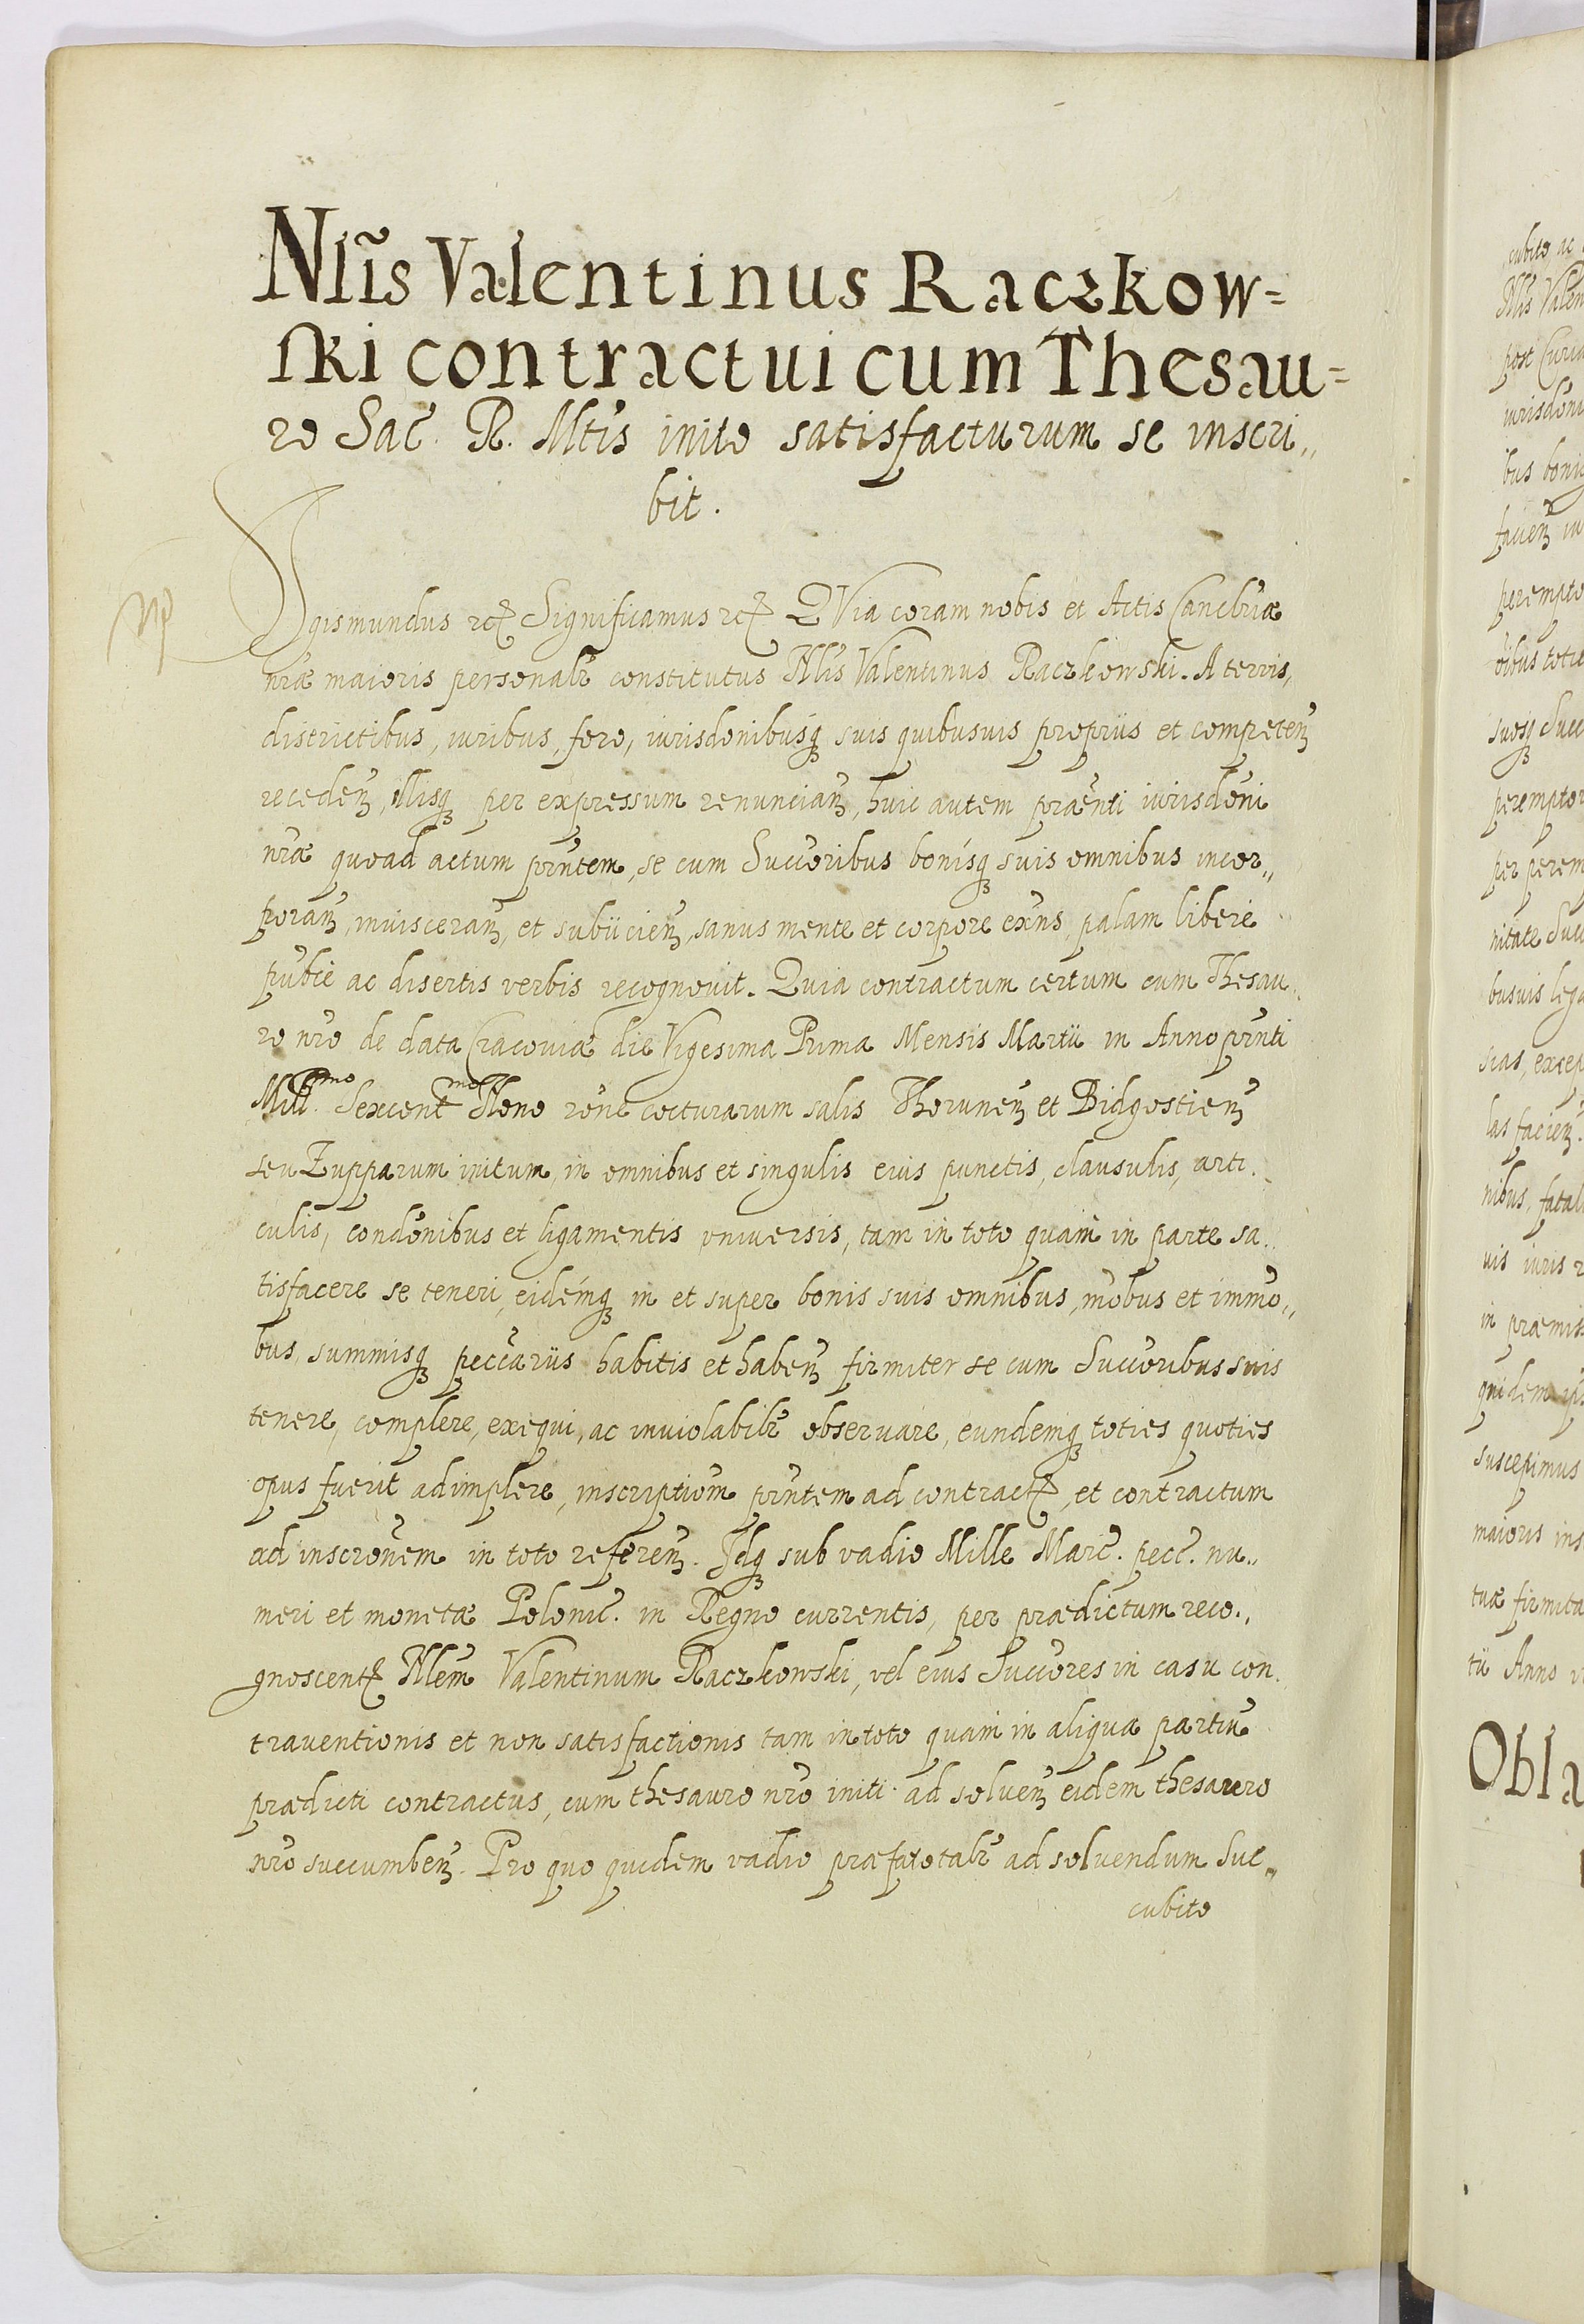 Nlĩs Valentinus Raczkow=
ski contractui cum Thesau=
ro Sac. R. Mtis inito satisfacturum se inscri„
bit.
Sigismundus etc Significamus etc QVia coram nobis et Actis Cancelriæ
nræ maioris personalr constitutus Nlis Valentinus Raczkowski. A terris,
districtibus, iuribus, foro, iurisdonibusq suis quibusuis proprijs et competen
receden, illisq per expressum renuncian, huic autem praenti iurisdoni
nræ quoad actum prntem, se cum Succoribus bonisq suis omnibus incor„
poran, inuisceran, et subijcien, sanus mente et corpore exns palam libere
publce ac disertis verbis recognouit. Quia contractum certum cum Thesau„
ro nro de data Cracouiæ die Vigesima Prima Mensis Martij in Anno prnti
Mill.mo Sexcentmo Nono rone cocturarum salis Thorunen et Bidgostien
seu Zupparum initum, in omnibus et singulis eius punctis, clausulis, arti„
culis, condonibus et ligamentis vniuersis, tam in toto quam in parte sa„
tisfacere se teneri, eidemq in et super bonis suis omnibus, mobus et immo„
bus, summisq peccarijs habitis et haben firmiter se cum Succoribus suis
tenere, complere, exequi, ac inuiolabilr obseruare, eundemq toties quoties
opus fuerit adimplere, inscriptiom prntem ad contract, et contractum
ad inscronem in toto referen. Idq sub vadio Mille Marc. pecc. nu„
meri et monetæ Polonic. in Regno currentis, per prædictum reco„
gnoscent Nlem Valentinum Raczkowski, vel eius Succores in casu con„
trauentionis et non satisfactionis tam in toto quam in aliqua parte
prædicti contractus, cum thesauro nro initi ad soluen eidem thesauro
nro succumben. Pro quo quidem vadio præfato talr ad soluendum suc„
cubito